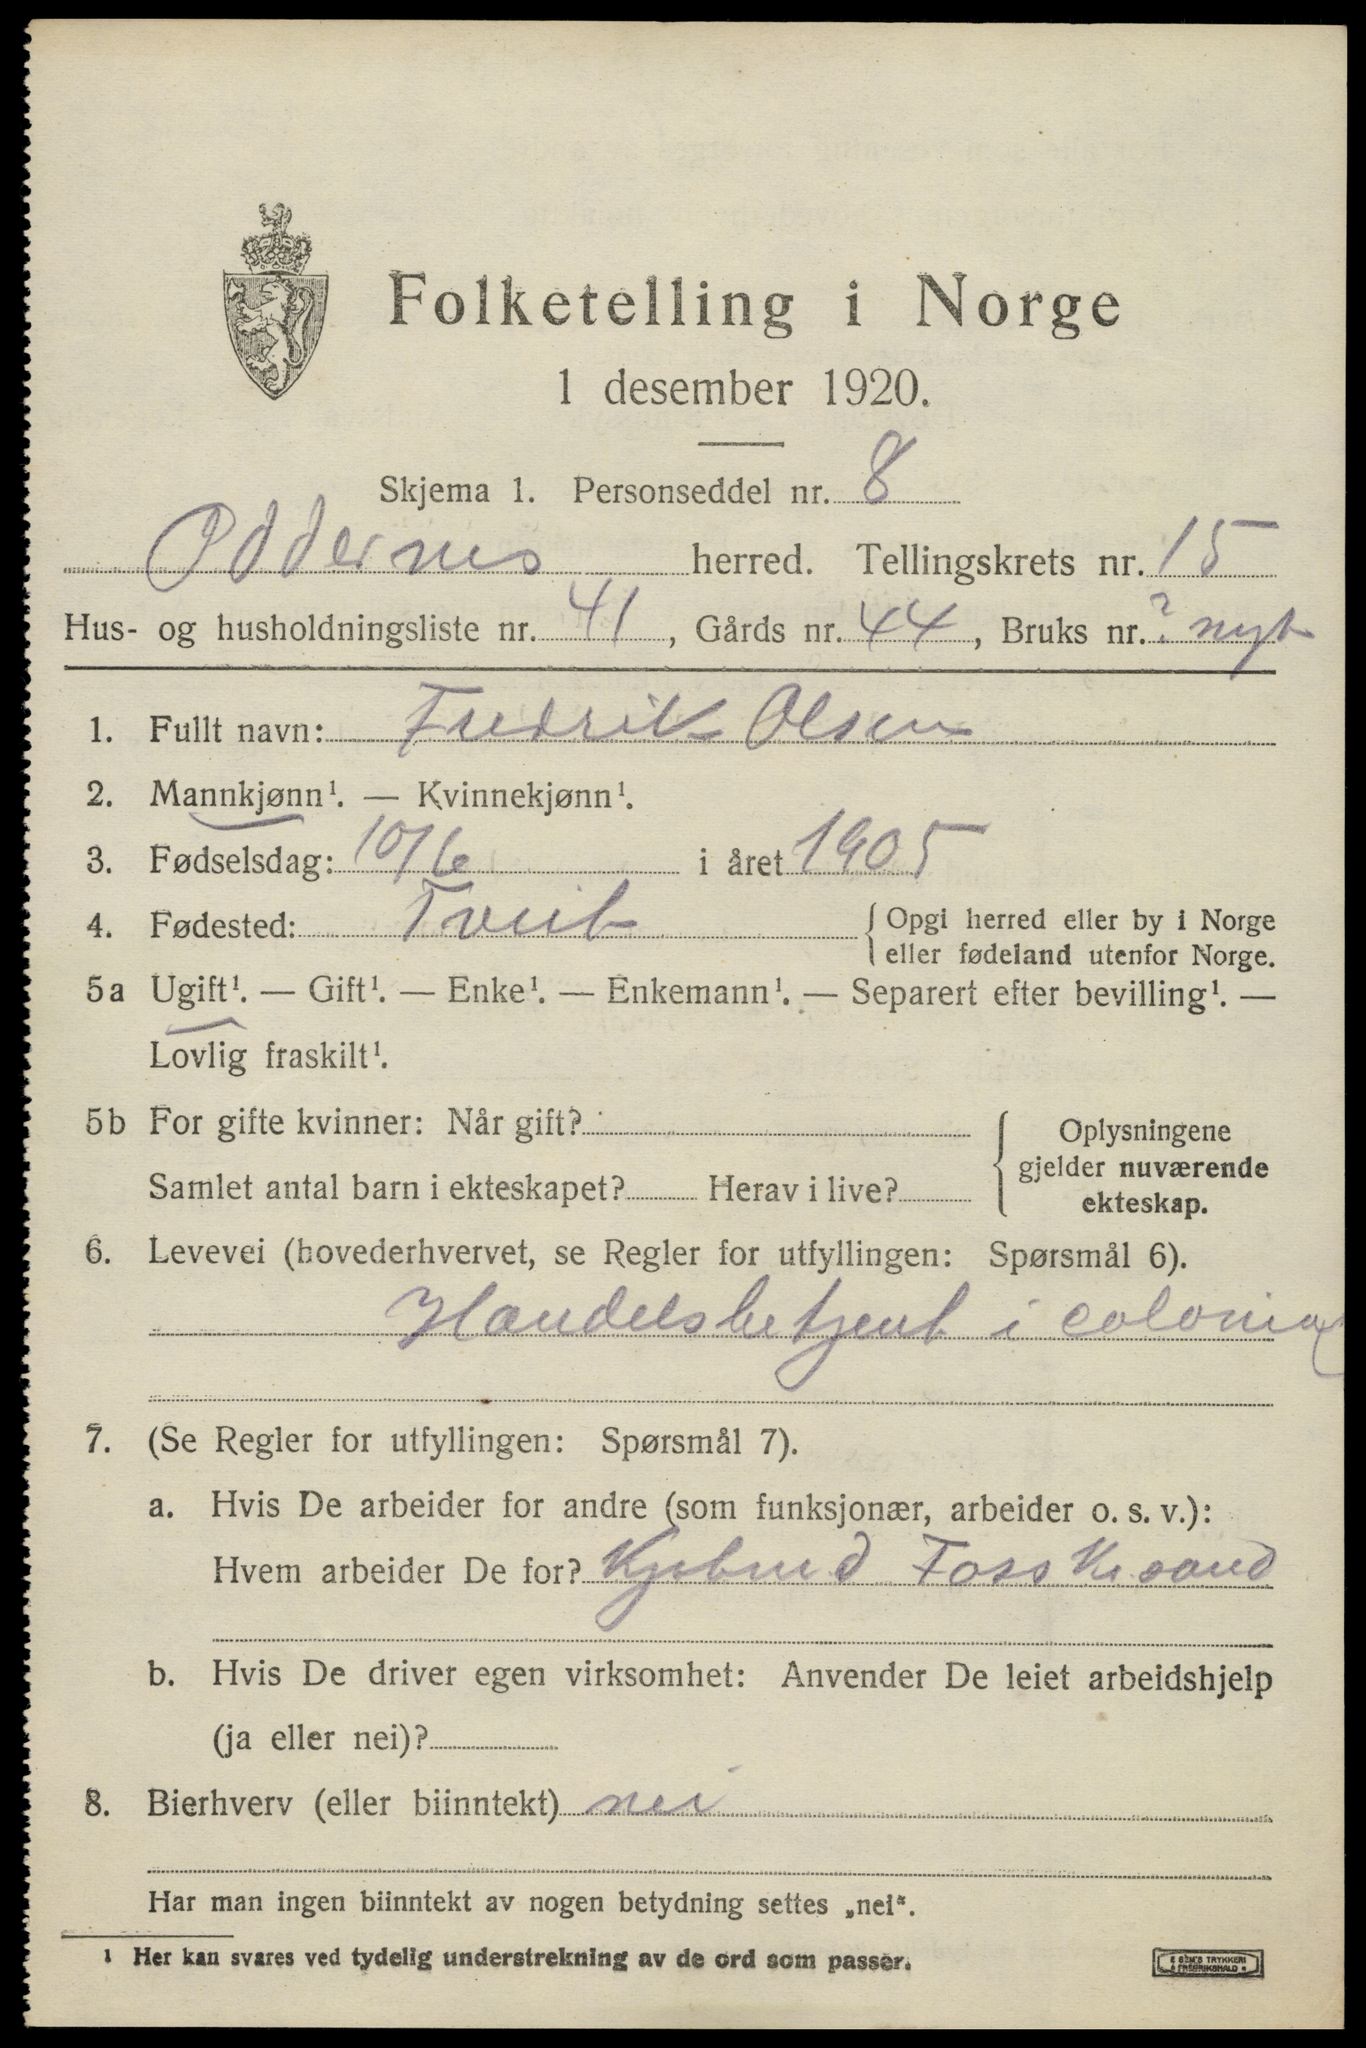 Folketelling i Norge
1 desember 1920.
Skjema 1. Personseddel nr. 8
Oddernes herred. Tellingskrets nr. 15
Hus- og husholdningsliste nr. 41, Gårds nr. 44, Bruks nr. ? nyt
1. Fullt navn: Fredrik Olsen
2. Mannkjønn¹. — Kvinnekjønn¹.
3. Fødselsdag: 10/6 i året 1905
4. Fødested: Tveit { Opgi herred eller by i Norge
eller fødeland utenfor Norge.
5a Ugift¹. — Gift¹. — Enke¹. — Enkemann¹. — Separert efter bevilling¹. —
Lovlig fraskilt¹.
5b For gifte kvinner: Når gift?
Samlet antal barn i ekteskapet? Herav i live?
Oplysningene
gjelder nuværende
ekteskap.
6. Levevei (hovederhvervet, se Regler for utfyllingen: Spørsmål 6).
Handelsbetjent i colonial
7. (Se Regler for utfyllingen: Spørsmål 7).
a. Hvis De arbeider for andre (som funksjonær, arbeider o. s. v.):
Hvem arbeider De for? Kjøbmd Foss Kr sand
b. Hvis De driver egen virksomhet: Anvender De leiet arbeidshjelp
(ja eller nei)?
8. Bierhverv (eller biinntekt) nei
Har man ingen biinntekt av nogen betydning settes „nei“.
¹ Her kan svares ved tydelig understrekning av de ord som passer.
E SEM'S TRYKKERI
FREDRIKSHALD